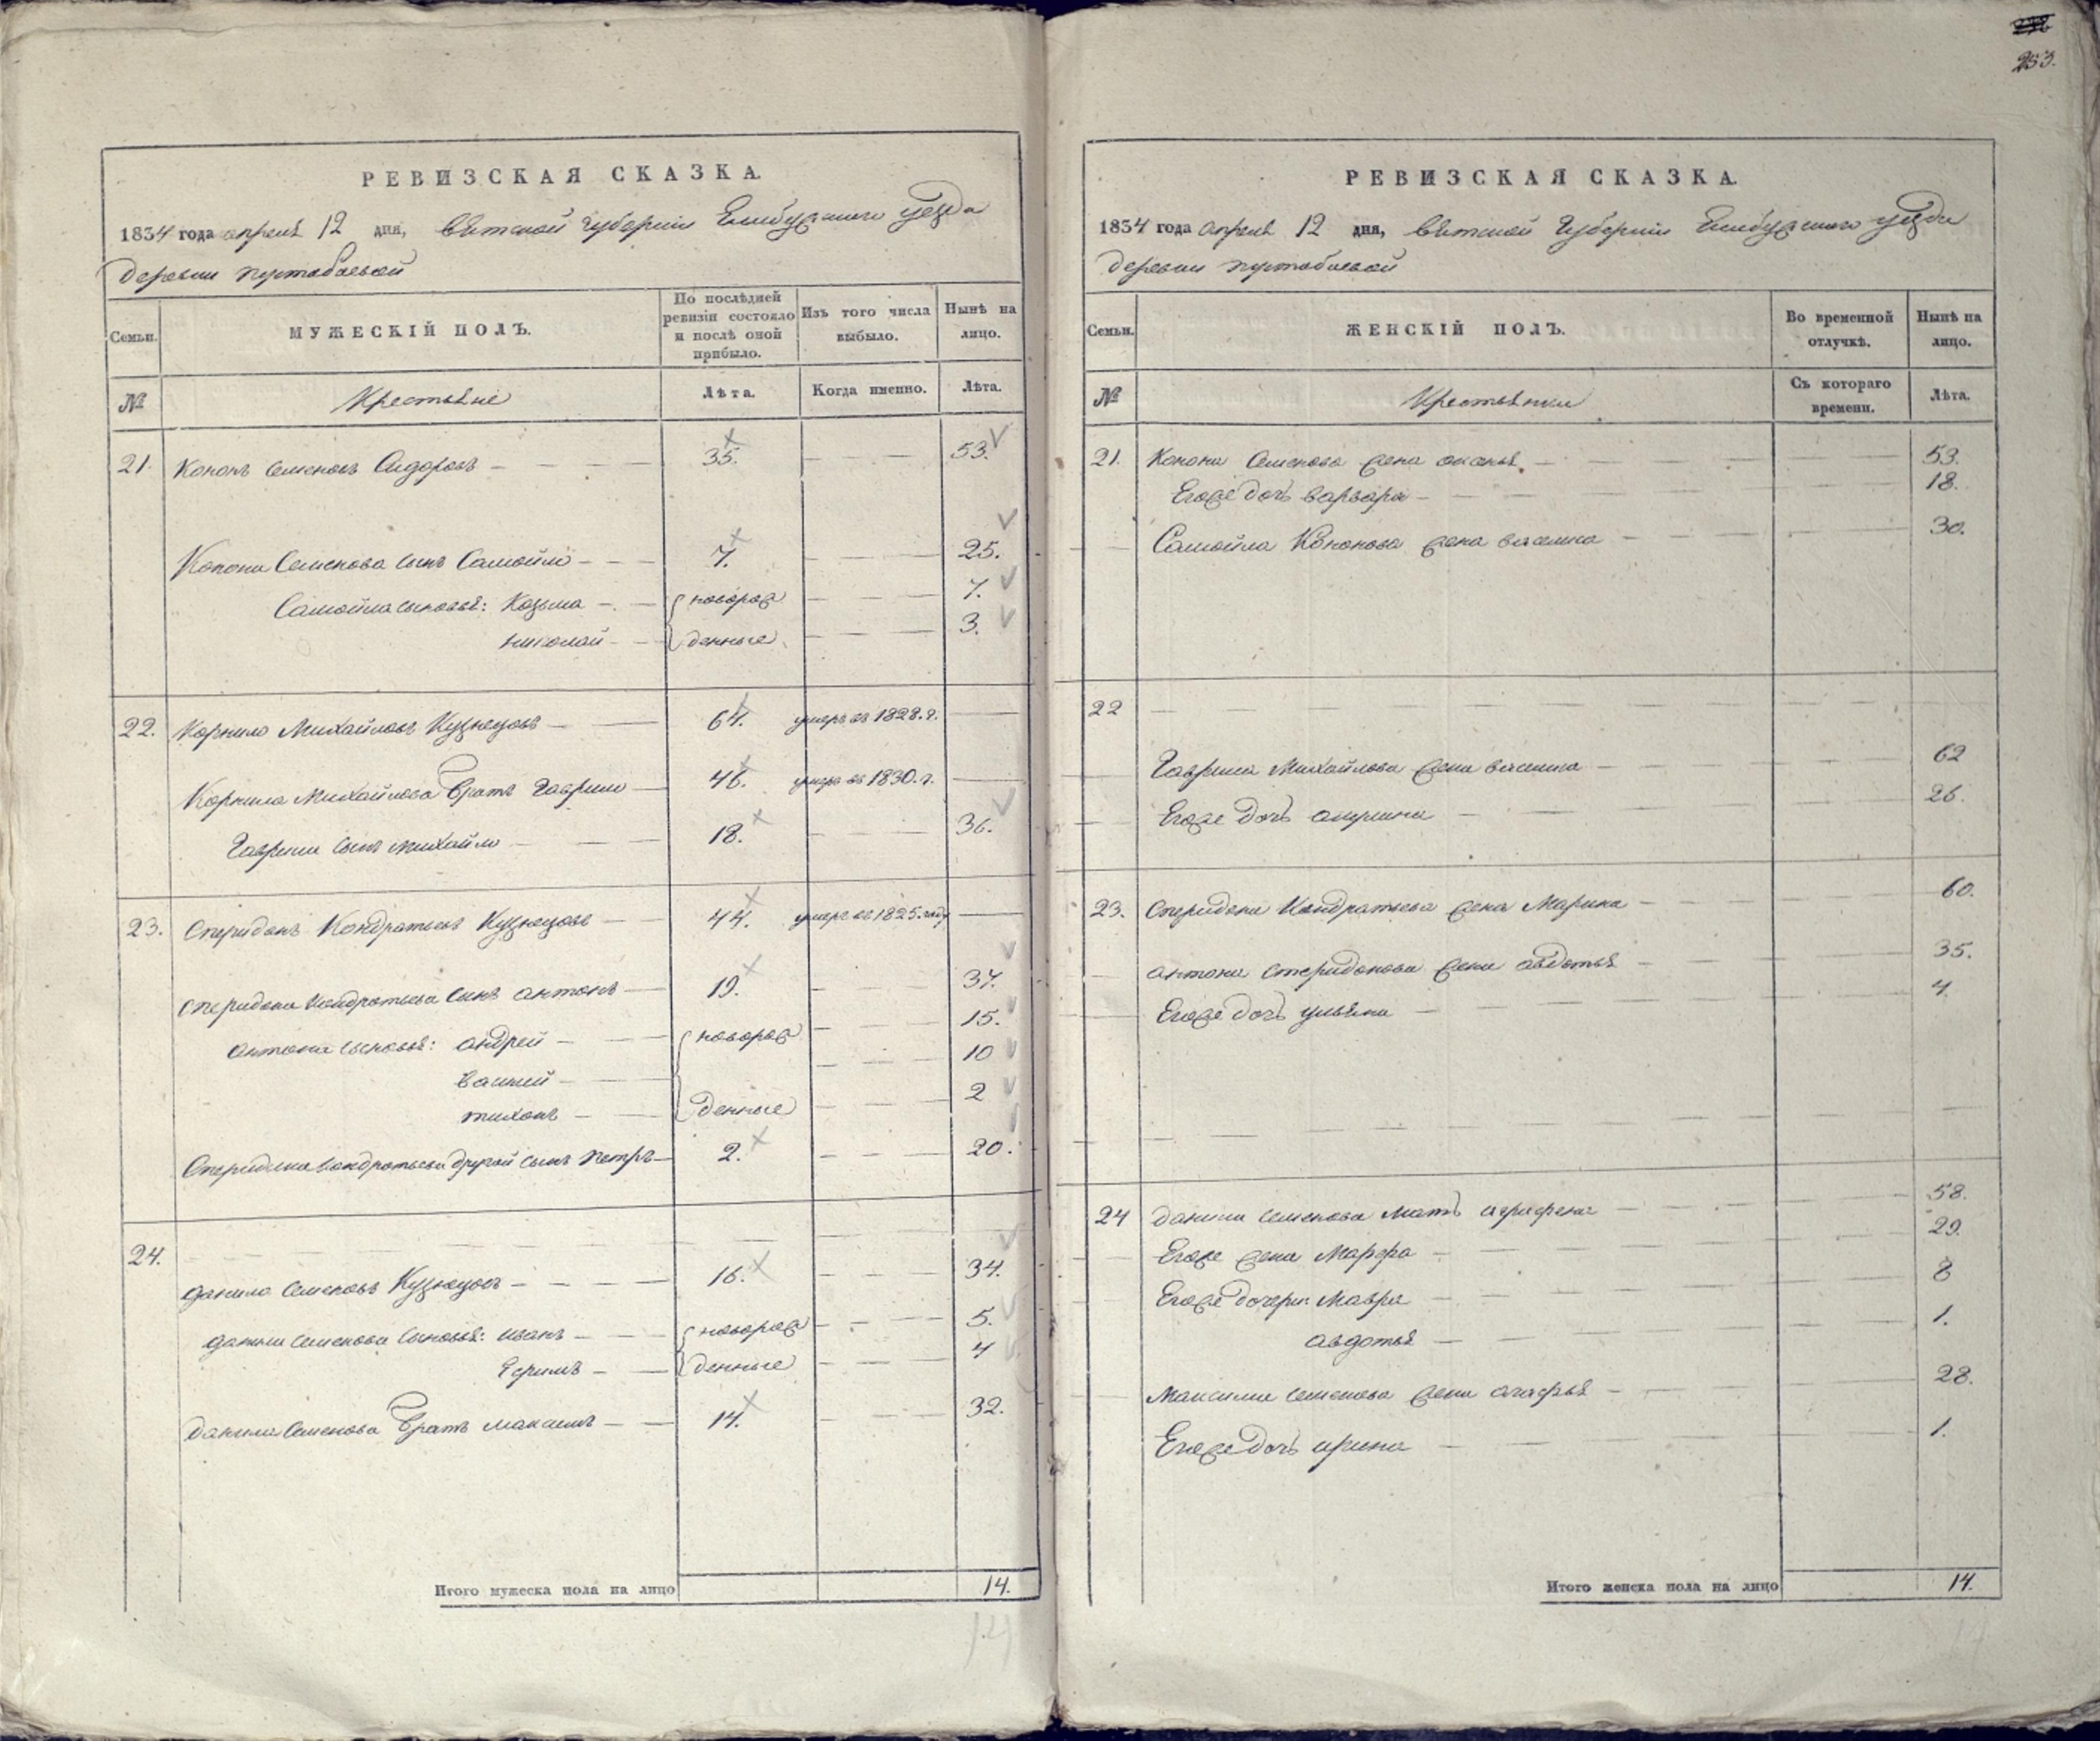 253.
РЕВИЗСКАЯ СКАЗКА.
1834 года апреля 12 дня, Вятской Губернии Елабужского уезда
деревни Пустобаевой
Семьи.
МУЖЕСКІЙ ПОЛЪ.
По послѣдней ревизіи состояло и послѣ оной прибыло.
Изъ того числа выбыло.
Нынѣ на лицо.
№
Крестьяне
Лѣта.
Когда именно.
Лѣта.
21. Кононъ Семеновъ Сидоровъ 35. 53.
Конона Семенова сынъ Самойло 7. 25.
Самойла сыновья: Козьма новорож 7.
Николай денные 3.
22. Корнило Михайловъ Кузнецовъ 64. умеръ въ 1828. г.
Корнила Михайлова братъ Гаврило 46. умеръ въ 1830. г.
Гаврилы сынъ Михайло 18. 36.
23. Спиридонъ Кондратьевъ Кузнецовъ 44. умеръ въ 1825. году
Спиридона Кондратьева сынъ Антонъ 19. 37.
Антона сыновья: Андрей новорож 15.
Василий 10
Тихонъ денные 2
Спиридона Кондратьева другой сынъ Петръ 2. 20.
24.
Данило Семеновъ Кузнецовъ 16. 34.
Данилы Семенова сыновья: Иванъ новорож 5.
Ефимъ денные 4
Данилы Семенова братъ Максимъ 14. 32.
Итого мужеска пола на лицо 14.
14
РЕВИЗСКАЯ СКАЗКА.
1834 года апреля 12 дня, Вятской Губернии Елабужского уезда
деревни Пустобаевой
Семьи.
ЖЕНСКІЙ ПОЛЪ.
Во временной отлучкѣ.
Нынѣ на лицо.
№
Крестьянки
Съ котораго времени.
Лѣта.
21. Конона Семенова жена Оксинья 53.
Егоже дочь Варвара 18.
Самойла Кононова жена Василиса 30.
22
Гаврила Михайлова жена Василиса 62
Егоже дочь Акулина 26.
23. Спиридона Кондратьева жена Марина 60.
Антона Спиридонова жена Авдотья 35.
Егоже дочь Ульяна 4.
24 Данилы Семенова мать Аграфена 58.
Егоже жена Марфа 29.
Егоже дочери: Мавра 8
Авдотья 1.
Максима Семенова жена Агафья 28.
Егоже дочь Ирина 1.
Итого женска пола на лицо 14.